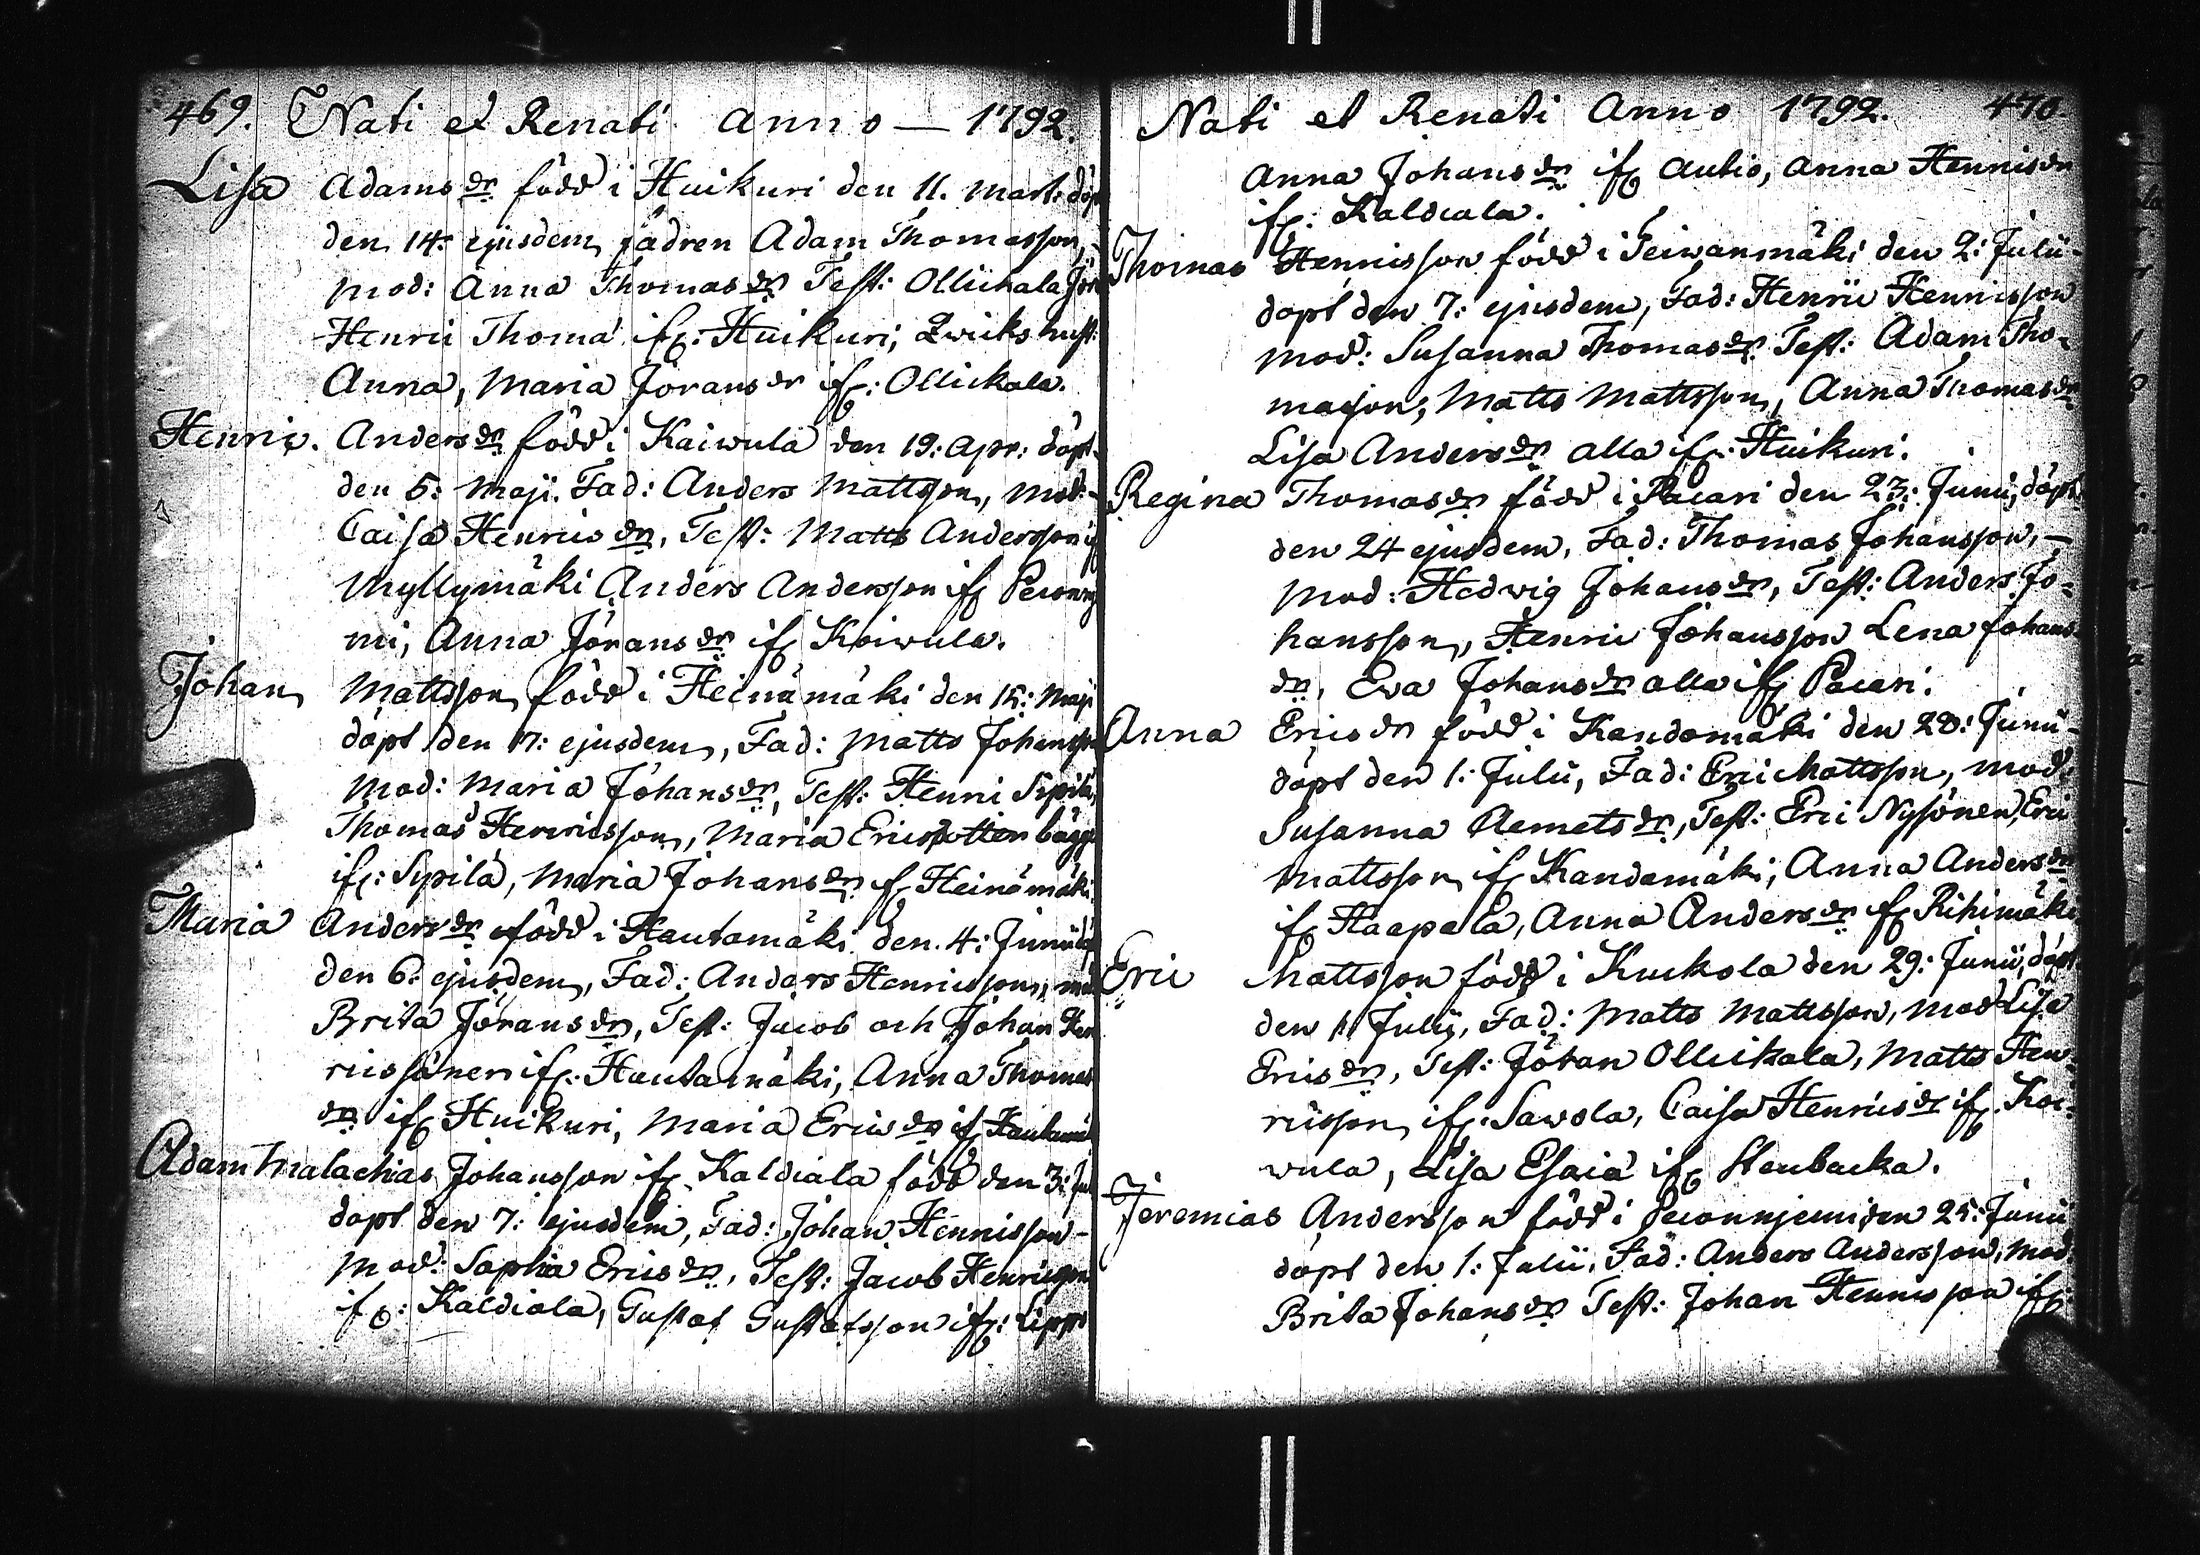 469. Nati et Renati anno — 1792.
Lisa Adams dr född i Huikuri den 11. Mart: döpt
den 14: ejusdem fadren Adam Thomasson,
mod: Anna Thomas dr Test: Ollickala Jör
Henric Thoma ifr: Huikuri, Qvicks hust:
Anna, Maria Jörans dr ifr: Ollickala.
Henric. Anders dr född i Kaiwula den 19: Apr: döpt
den 5: Maji. Fad: Anders Mattsson, Mod:
Caisa Henrics dr, Test: Matts Andersson if
Myllymäki Anders Andersson ifr Peconie
mi, Anna Jörans dr ifr Koiwula.
Johan Mattsson född i Heinämäki den 15: Maji
döpt den 17: ejusdem, Fad: Matts Johansson
Mod: Maria Johans dr, Test: Henric Sipilä,
Thomas Henricsson, Maria Ericsdotter bägge
ifr: Sipilä, Maria Johans dr ifr Heinämäki.
Maria Anders dr född i Hautamäki den 4: Junii döpt
den 6: ejusdem, Fad: Anders Henricsson, mod
Brita Jörans dr, Test: Jacob och Johan Hen
ricssöner ifr: Hautamäki, Anna Thomas
dr ifr Huikuri, Maria Erics dr ifr Hautamäki
Adam Malachias Johansson ifr Kaldiala född den 3: Jul
döpt den 7: ejusdem, Fad: Johan Henricsson -
Mod: Sophia Erics dr, Test: Jacob Henricsson
ifr: Kaldiala, Gustaf Gustafsson ifr: Lippo
Nati et Renati Anno 1792. 470.
Anna Johans dr ifr Autio, Anna Henrics dr
ifr: Kaldiala.
Thomas Henricsson född i Teiwanmäki den 2: Julii
döpt den 7: ejusdem, Fad: Henric Henricsson
Mod: Susanna Thomas dr Test: Adam Tho-
masson, Matts Mattsson, Anna Thomas dr
Lisa Anders dr alla ifr: Huikuri.
Regina Thomas dr född i Pacari den 23: Junii, döpt
den 24 ejusdem, Fad: Thomas Johansson, —
Mod: Hedvig Johans dr, Test: Anders Jo-
hansson, Henric Johansson Lena Johans
dr, Eva Johans dr alla ifr Pacari.
Anna Erics dr född i Kandomäki den 28: Junii
döpt den 1: Julii, Fad: Eric Mattsson, mod:
Susanna Clemets dr, Test: Eric Nysönen, Eric
Mattsson ifr Kandamäki, Anna Anders dr
ifr Haapala, Anna Anders dr ifr Rihimäki
Eric Mattsson född i Kuckola den 29: Junii, döpt
den 1: Julii, Fad: Matts Mattsson, Mod Lisa
Erics dr, Test: Jöran Ollickala, Matts Hen-
ricsson ifr: Sawola, Caisa Henrics dr ifr Koi-
wula, Lisa Esaia ifr Stenbacka.
Jeremias Andersson född i Peconnjemi den 25: Junii
döpt den 1: Julii, Fad: Anders Andersson, Mod
Brita Johans dr Test: Johan Henricsson ifr: